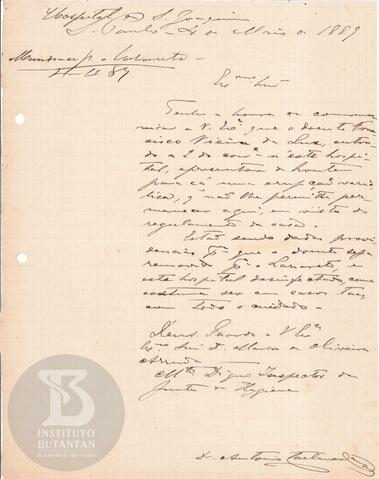 Hospital de S. Joaquim
S. Paulo 4 de Maio de 1889
Mandou-se p.ª o Lazareto
4-5-89
Ex.mo Snr.
Tenho a honra de communicar
a V. Ex.ª que o doente Francisco
Vieira da Luz, entrado
a 2 do corr.te n'este hospital,
apresentou de hontem
para cá uma erupção variolica,
q' não lhe permitte permanecer
aqui, em vista do
regulamento da casa.
Estão sendo dadas providencias
p.ª que o doente seja
removido p.ª o Lazareto, e
este hospital desinfectado, como
costuma ser em casos taes,
com todo o cuidado.
Deus Guarde a V. Ex.ª
Ex.mo Snr. D. Marcos de Oliveira
Arruda
M.to Digno Inspector da
Junta de Hygiene
Dr. Antonio
INSTITUTO
BUTANTAN
A serviço da vida